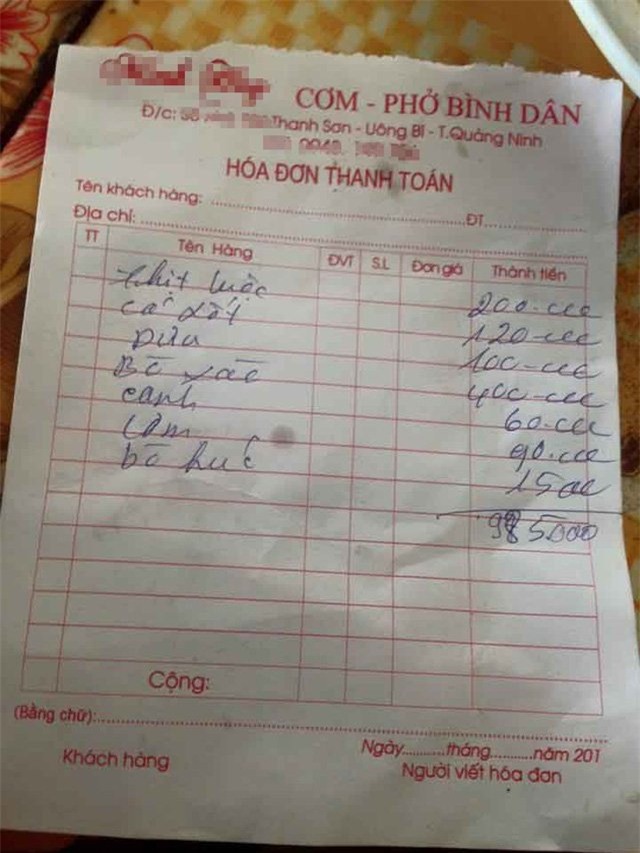 CƠM - PHỞ BÌNH DÂN
Đ/c: Thanh Sơn - Uông Bí - T.Quảng Ninh
HÓA ĐƠN THANH TOÁN
Tên khách hàng: ĐT
Địa chỉ:
TT Tên Hàng ĐVT S.L Đơn giá Thành tiền
thịt luộc 200.000
120.000
Dưa 100.000
Bò xào 400.000
canh 60.000
Cơm 90.000
bò húc 15000
985000
Cộng:
(Bằng chữ):
Ngày tháng năm 201
Khách hàng Người viết hóa đơn